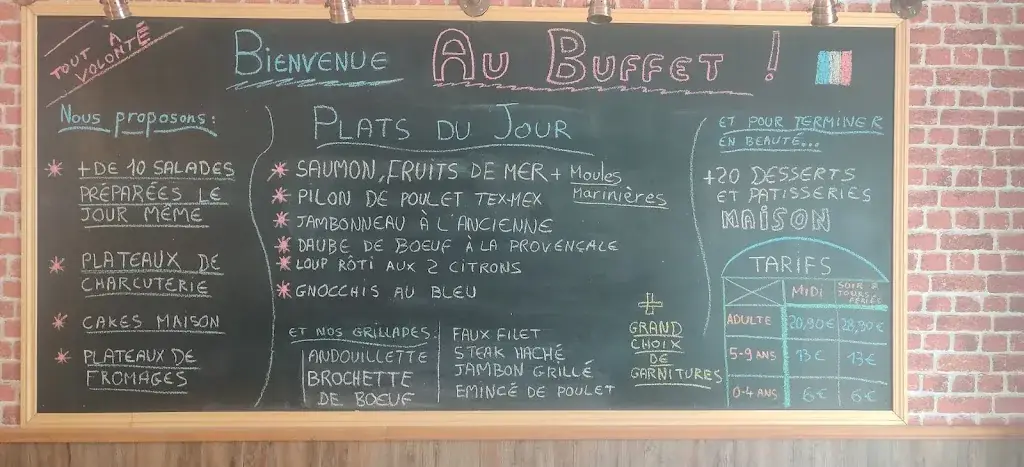 TOUT À
VOLONTÉ
BIENVENUE AU BUFFET !
Nous proposons:
* + DE 10 SALADES
PRÉPARÉES LE
JOUR MÊME
* PLATEAUX DE
CHARCUTERIE
* CAKES MAISON
* PLATEAUX DE
FROMAGES
PLATS DU JOUR
* SAUMON, FRUITS DE MER + Moules
Marinières
* PILON DE POULET TEX-MEX
* JAMBONNEAU À L'ANCIENNE
* DAUBE DE BOEUF À LA PROVENÇALE
* LOUP RÔTI AUX 2 CITRONS
* GNOCCHIS AU BLEU
ET NOS GRILLADES:
ANDOUILLETTE
BROCHETTE
DE BOEUF
FAUX FILET
STEAK HACHÉ
JAMBON GRILLÉ
EMINCÉ DE POULET
+
GRAND
CHOIX
DE
GARNITURES
ET POUR TERMINER
EN BEAUTÉ...
+20 DESSERTS
ET PATISSERIES
MAISON
TARIFS
MIDI SOIR &
JOURS
FÉRIÉS
ADULTE 20,90€ 28,90€
5-9 ANS 13€ 13€
0-4 ANS 6€ 6€